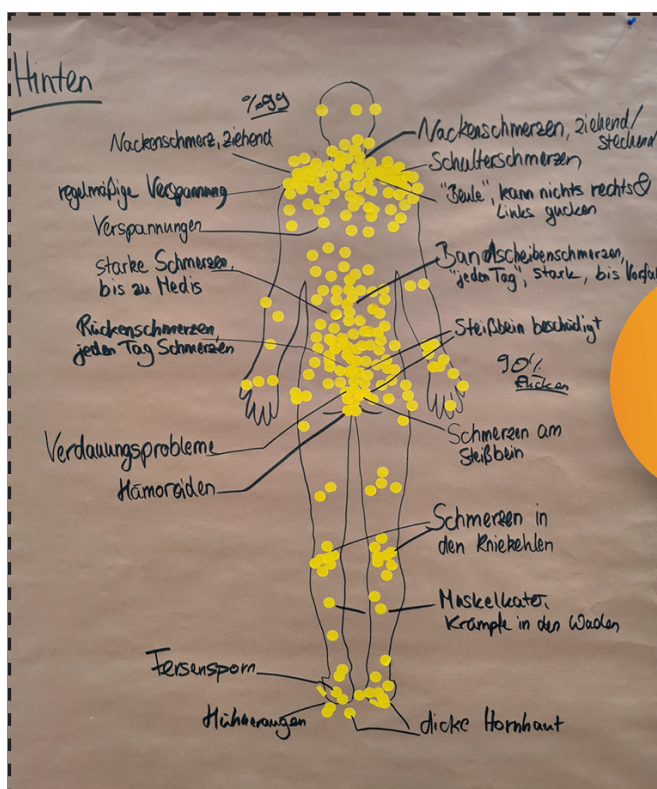 Hinten
%99
Nackenschmerz, ziehend
regelmäßige Verspannung
Verspannungen
starke Schmerzen,
bis zu Medis
Rückenschmerzen,
jeden Tag Schmerzen
Verdauungsprobleme
Hämoroiden
Fersensporn
Hühneraugen
Nackenschmerzen, ziehend/
stechend
Schulterschmerzen
"Beule", kann nichts rechts &
Links gucken
Bandscheibenschmerzen,
"jeden Tag", stark, bis
Steißbein beschädigt
90%
Schmerzen am
Steißbein
Schmerzen in
den Kniekehlen
Muskelkater,
Krämpfe in den Waden
dicke Hornhaut